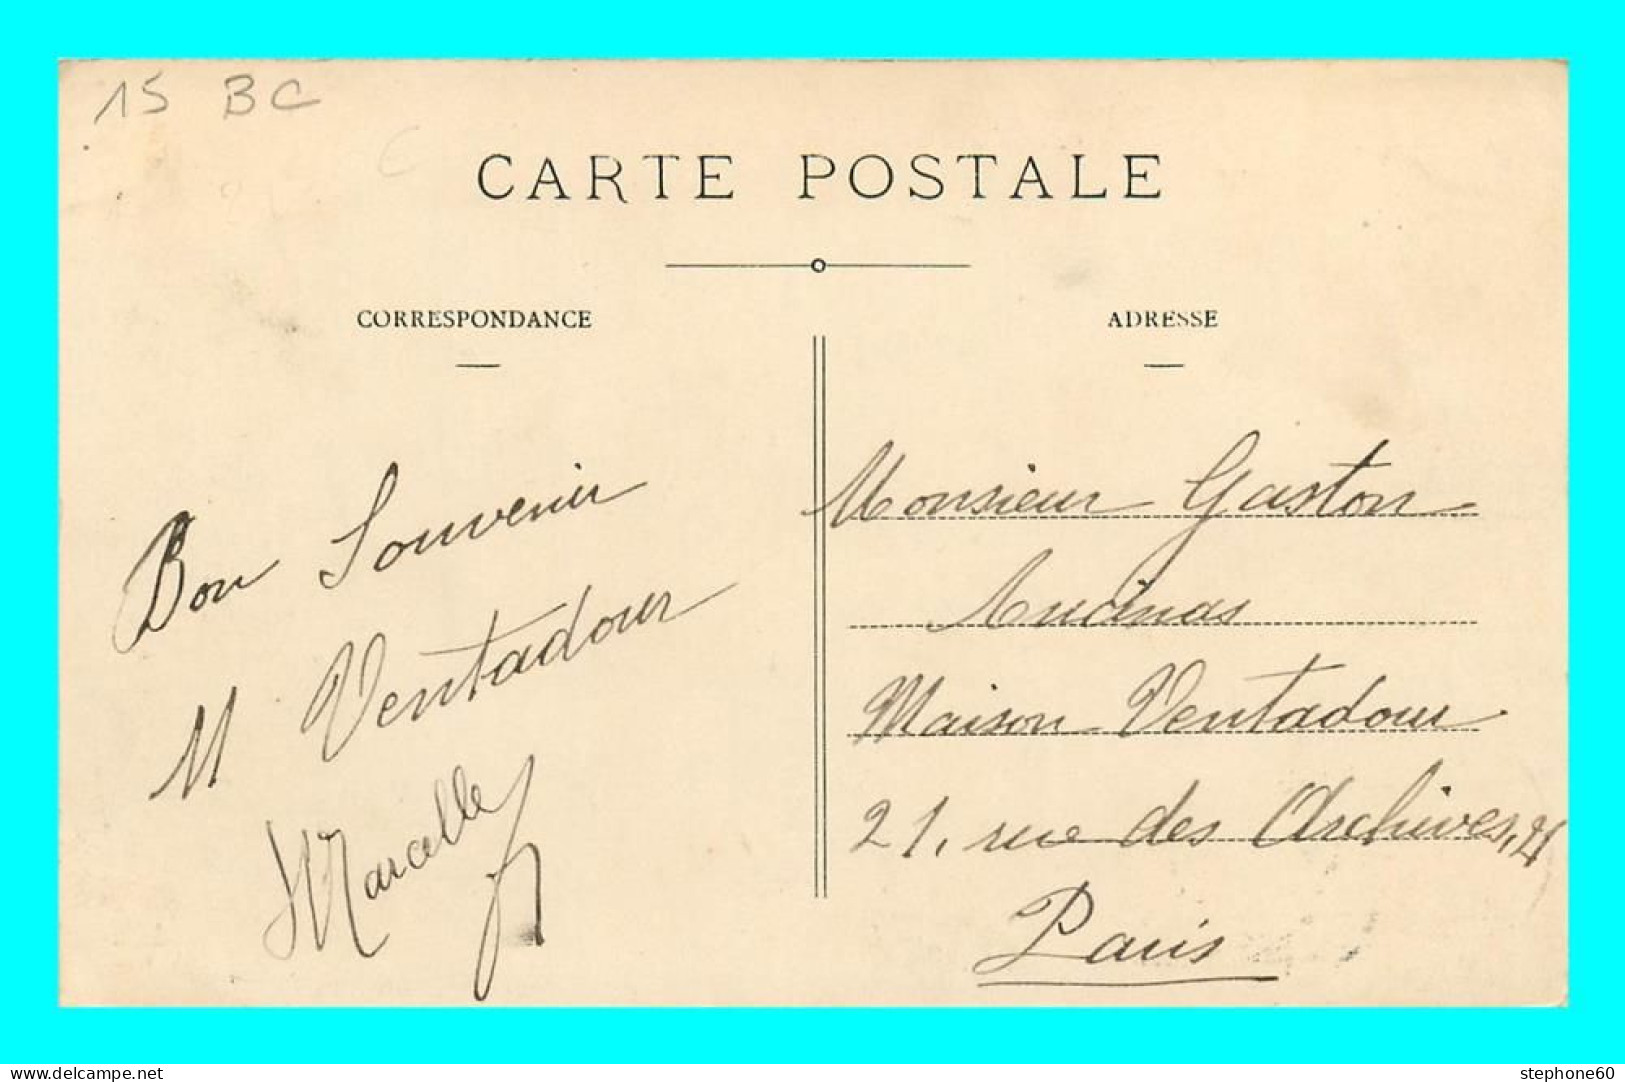 15 BC
CARTE POSTALE
CORRESPONDANCE
Bon Souvenir
M Ventadour
Marcelle
ADRESSE
Monsieur Gaston
Maison Ventadour
21, rue des Archives, 21
Paris
www.delcampe.net
stephone60